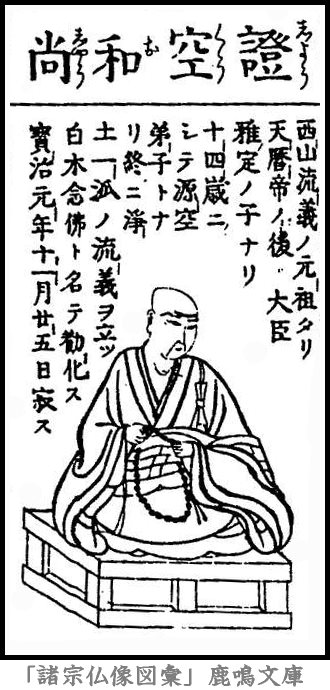 證空和尚
しよう くう お しやう
西山流義ノ元祖タリ
天暦帝ノ後 大臣
雅定ノ子ナリ
十四歳ニ
シテ源空
弟子トナ
リ終ニ淨
土一派ノ流義ヲ立ツ
白木念佛ト名テ勸化ス
寶治元年十一月廿五日寂ス
「諸宗仏像図彙」鹿鳴文庫